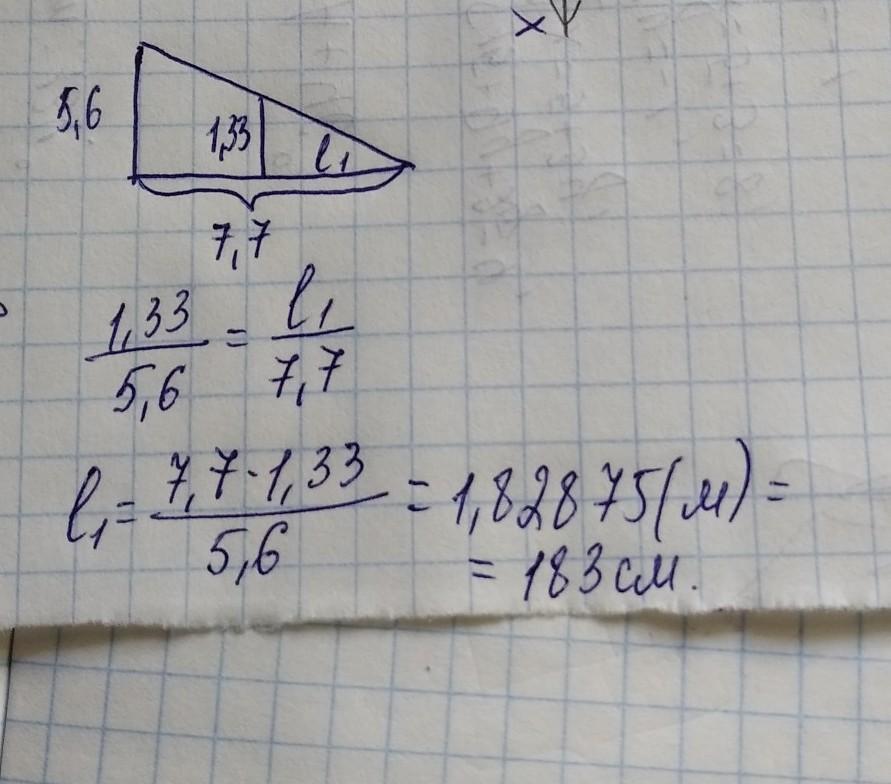 x
5,6
1,33
l₁
7,7
1,33/5,6 = l₁/7,7
l₁ = 7,7·1,33/5,6 = 1,82875(м) =
= 183 см.